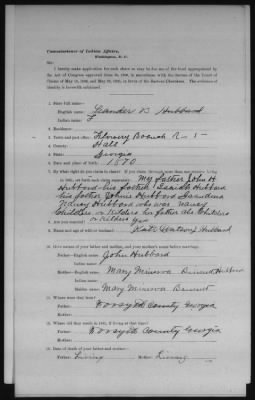 Commissioner of Indian Affairs,
Washington, D. C.
Sir:
I hereby make application for such share as may be due me of the fund appropriated by
the Act of Congress approved June 30, 1906, in accordance with the decrees of the Court of
Claims of May 18, 1905, and May 28, 1906, in favor of the Eastern Cherokees. The evidence
of identity is herewith subjoined.
1. State full name—
English name: Leander B Hubbard
Indian name:
2. Residence:
3. Town and post office: Flowery Branch R - 1 -
4. County: Hall
5. State: Georgia
6. Date and place of birth: 1870
7. By what right do you claim to share? If you claim through more than one relative living
in 1851, set forth each claim separately: My father John H
Hubbard his father Hubbard
his father John Hubbard
Nancy Hubbard who was Nancy
Childres or Kilders her father Abe Childres
or Kilders
8. Are you married?
9. Name and age of wife or husband: Hubbard
10. Give names of your father and mother, and your mother's name before marriage.
Father—English name: John Hubbard
Indian name:
Mother—English name: Mary Minerva Bennett Hubbard
Indian name:
Maiden name: Mary Minerva Bennett
11. Where were they born?
Father: Forsyth County Georgia
Mother:
12. Where did they reside in 1851, if living at that time?
Father: Forsyth County Georgia
Mother:
13. Date of death of your father and mother—
Father: Living Mother: Living